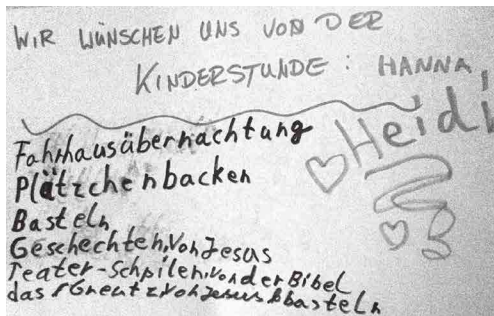 WIR WÜNSCHEN UNS VON DER
KINDERSTUNDE: HANNA,
Heidi
Fahrhausübernachtung
Plätzchenbacken
Basteln
Geschechten von Jesus
Teater-Schpilen von der Bibel
das Greutz von Jesus basteln